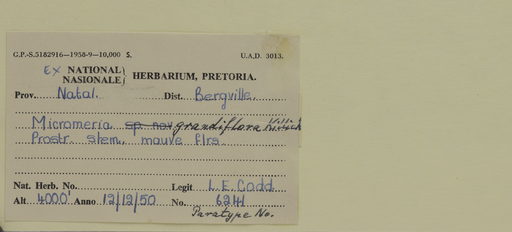 G.P.-S.5182916—1958-9—10,000 S. U.A.D. 3013.
Ex NATIONAL
NASIONALE } HERBARIUM, PRETORIA.
Prov. Natal. Dist. Bergville.
Micromeria sp. nov. grandiflora Killick
Prostr. stem, mauve flrs.
Nat. Herb. No. Legit L.E. Codd
Alt 4000' Anno 12/12/50 No. 6241
Paratype No.